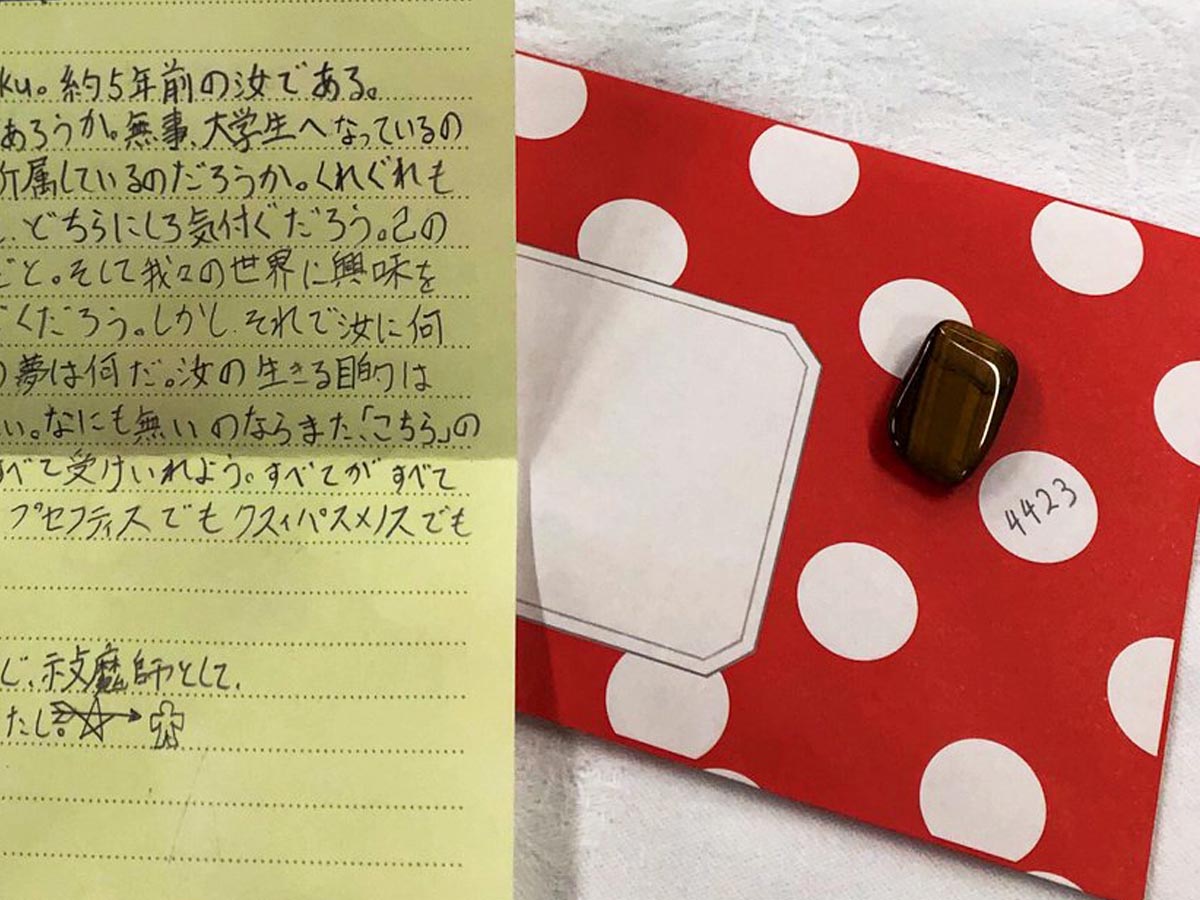 ku。約5年前の汝である。
あろうか。無事、大学生へなっているの
所属しているのだろうか。くれぐれも
、どちらにしろ気付ぐだろう。己の
だと。そして我々の世界に興味を
くだろう。しかし、それで汝に何
夢は何だ。汝の生きる目的は
い。なにも無いのならまた、「こちら」の
すべて受けいれよう。すべてがすべて
プセフティスでもクスィパスメノスでも
じ、祓魔師として、
たし。
4423